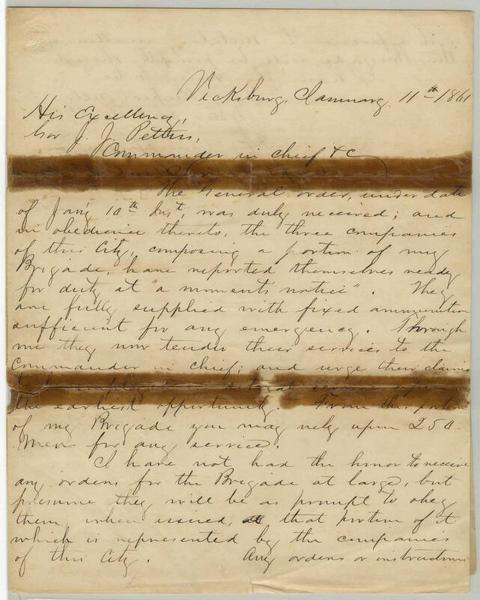 Vicksburg, January, 11th 1861
His Excellency,
Gov J. J. Pettus,
Commander in chief &c
The General order, under date
of Jany 10th Inst, was duly received; and
in obedience thereto, the three companies
of this City, composing portion of my
Brigade, have reported themselves ready
for duty at "a moments notice". They
are fully supplied with fixed ammunition
sufficient for any emergency. Through
me they now tender their services to the
Commander in chief; and urge their claims
the earliest opportunity. From this part
of my Brigade you may rely upon 250
Men for any service.
I have not had the honor to receive
any orders for the Brigade at large, but
presume they will be as prompt to obey
them when issued, as that portion of it
which is represented by the companies
of this City. Any orders or instructions